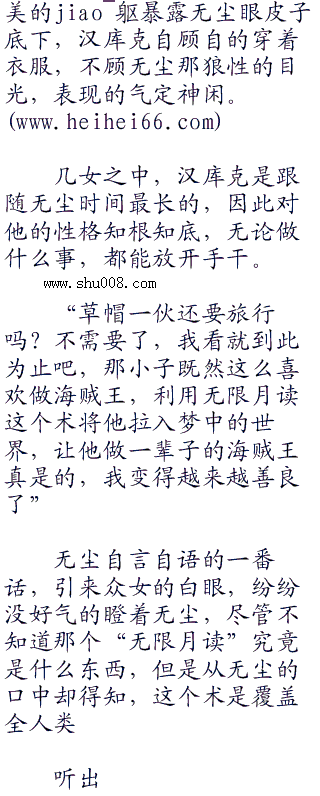 美的jiao¯躯暴露无尘眼皮子
底下，汉库克自顾自的穿着
衣服，不顾无尘那狼性的目
光，表现的气定神闲。
(www.heihei66.com)
几女之中，汉库克是跟
随无尘时间最长的，因此对
他的性格知根知底，无论做
什么事，都能放开手干。
www.shu008.com
“草帽一伙还要旅行
吗？不需要了，我看就到此
为止吧，那小子既然这么喜
欢做海贼王，利用无限月读
这个术将他拉入梦中的世
界，让他做一辈子的海贼王
真是的，我变得越来越善良
了”
无尘自言自语的一番
话，引来众女的白眼，纷纷
没好气的瞪着无尘，尽管不
知道那个“无限月读”究竟
是什么东西，但是从无尘的
口中却得知，这个术是覆盖
全人类
听出